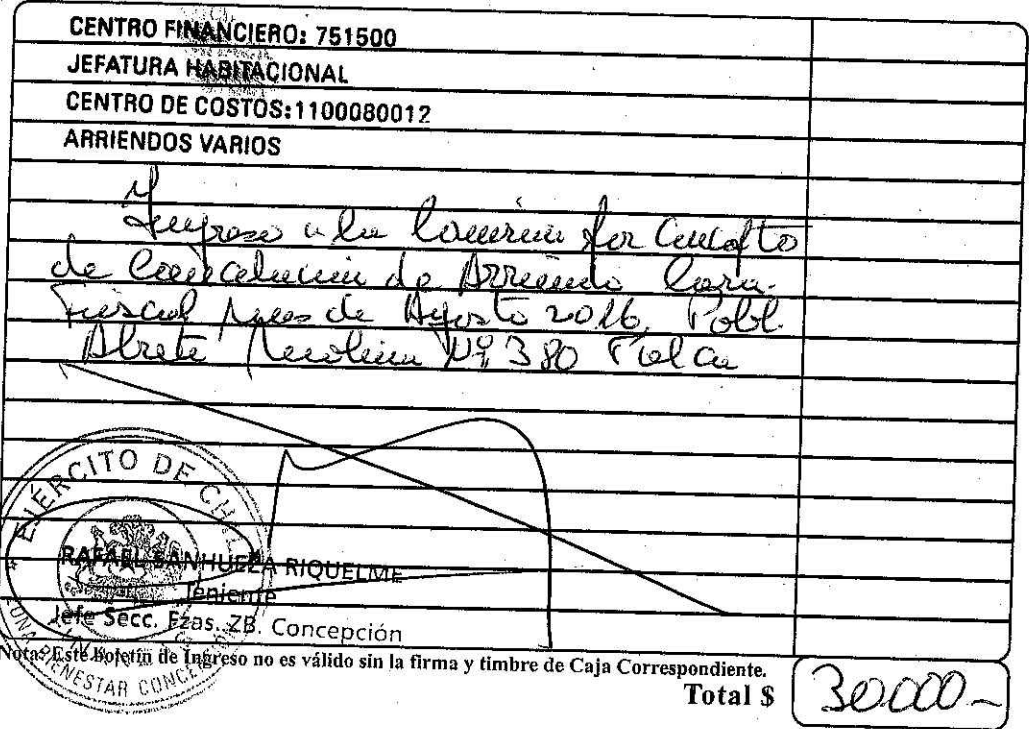 CENTRO FINANCIERO: 751500
JEFATURA HABITACIONAL
CENTRO DE COSTOS:1100080012
ARRIENDOS VARIOS
Ingreso a la por
de de Arriendo Casa
Fiscal mes de Agosto 2016, Pobl.
Nº 380 Talca
EJÉRCITO DE CHILE
RAFAEL SANHUEZA RIQUELME
Teniente
Jefe Secc. Fzas. ZB. Concepción
BIENESTAR CONCEPCIÓN
Nota: Este Boletín de Ingreso no es válido sin la firma y timbre de Caja Correspondiente.
Total $ 30.000.-